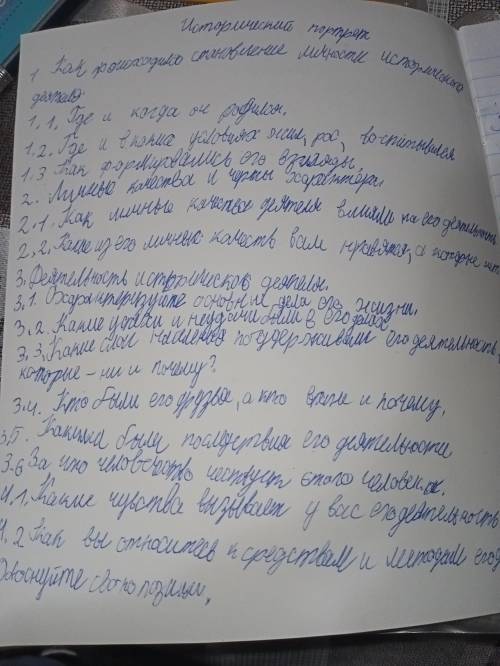 Исторический портрет
1 Как происходило становление личности исторического
деятеля
1.1. Где и когда он родился.
1.2. Где и в каких условиях жил, рос, воспитывался
1.3 Как формировались его взгляды.
2. Личные качества и черты характера.
2.1. Как личные качества деятеля влияли на его деятельность
2.2. Какие из его личных качеств вам нравятся, а которые нет
3. Деятельность исторического деятеля.
3.1. Охарактеризуйте основные дела его жизни.
3.2. Какие удачи и неудачи были в его делах
3.3. Какие слои населения поддерживали его деятельность,
которые - ни и почему?
3.4. Кто были его друзья, а кто враги и почему.
3.5. Какими были последствия его деятельности
3.6 За что человечество чествует этого человека.
4.1. Какие чувства вызывает у вас его деятельность
4.2 Как вы относитесь к средствам и методам его
Обоснуйте свою позицию.